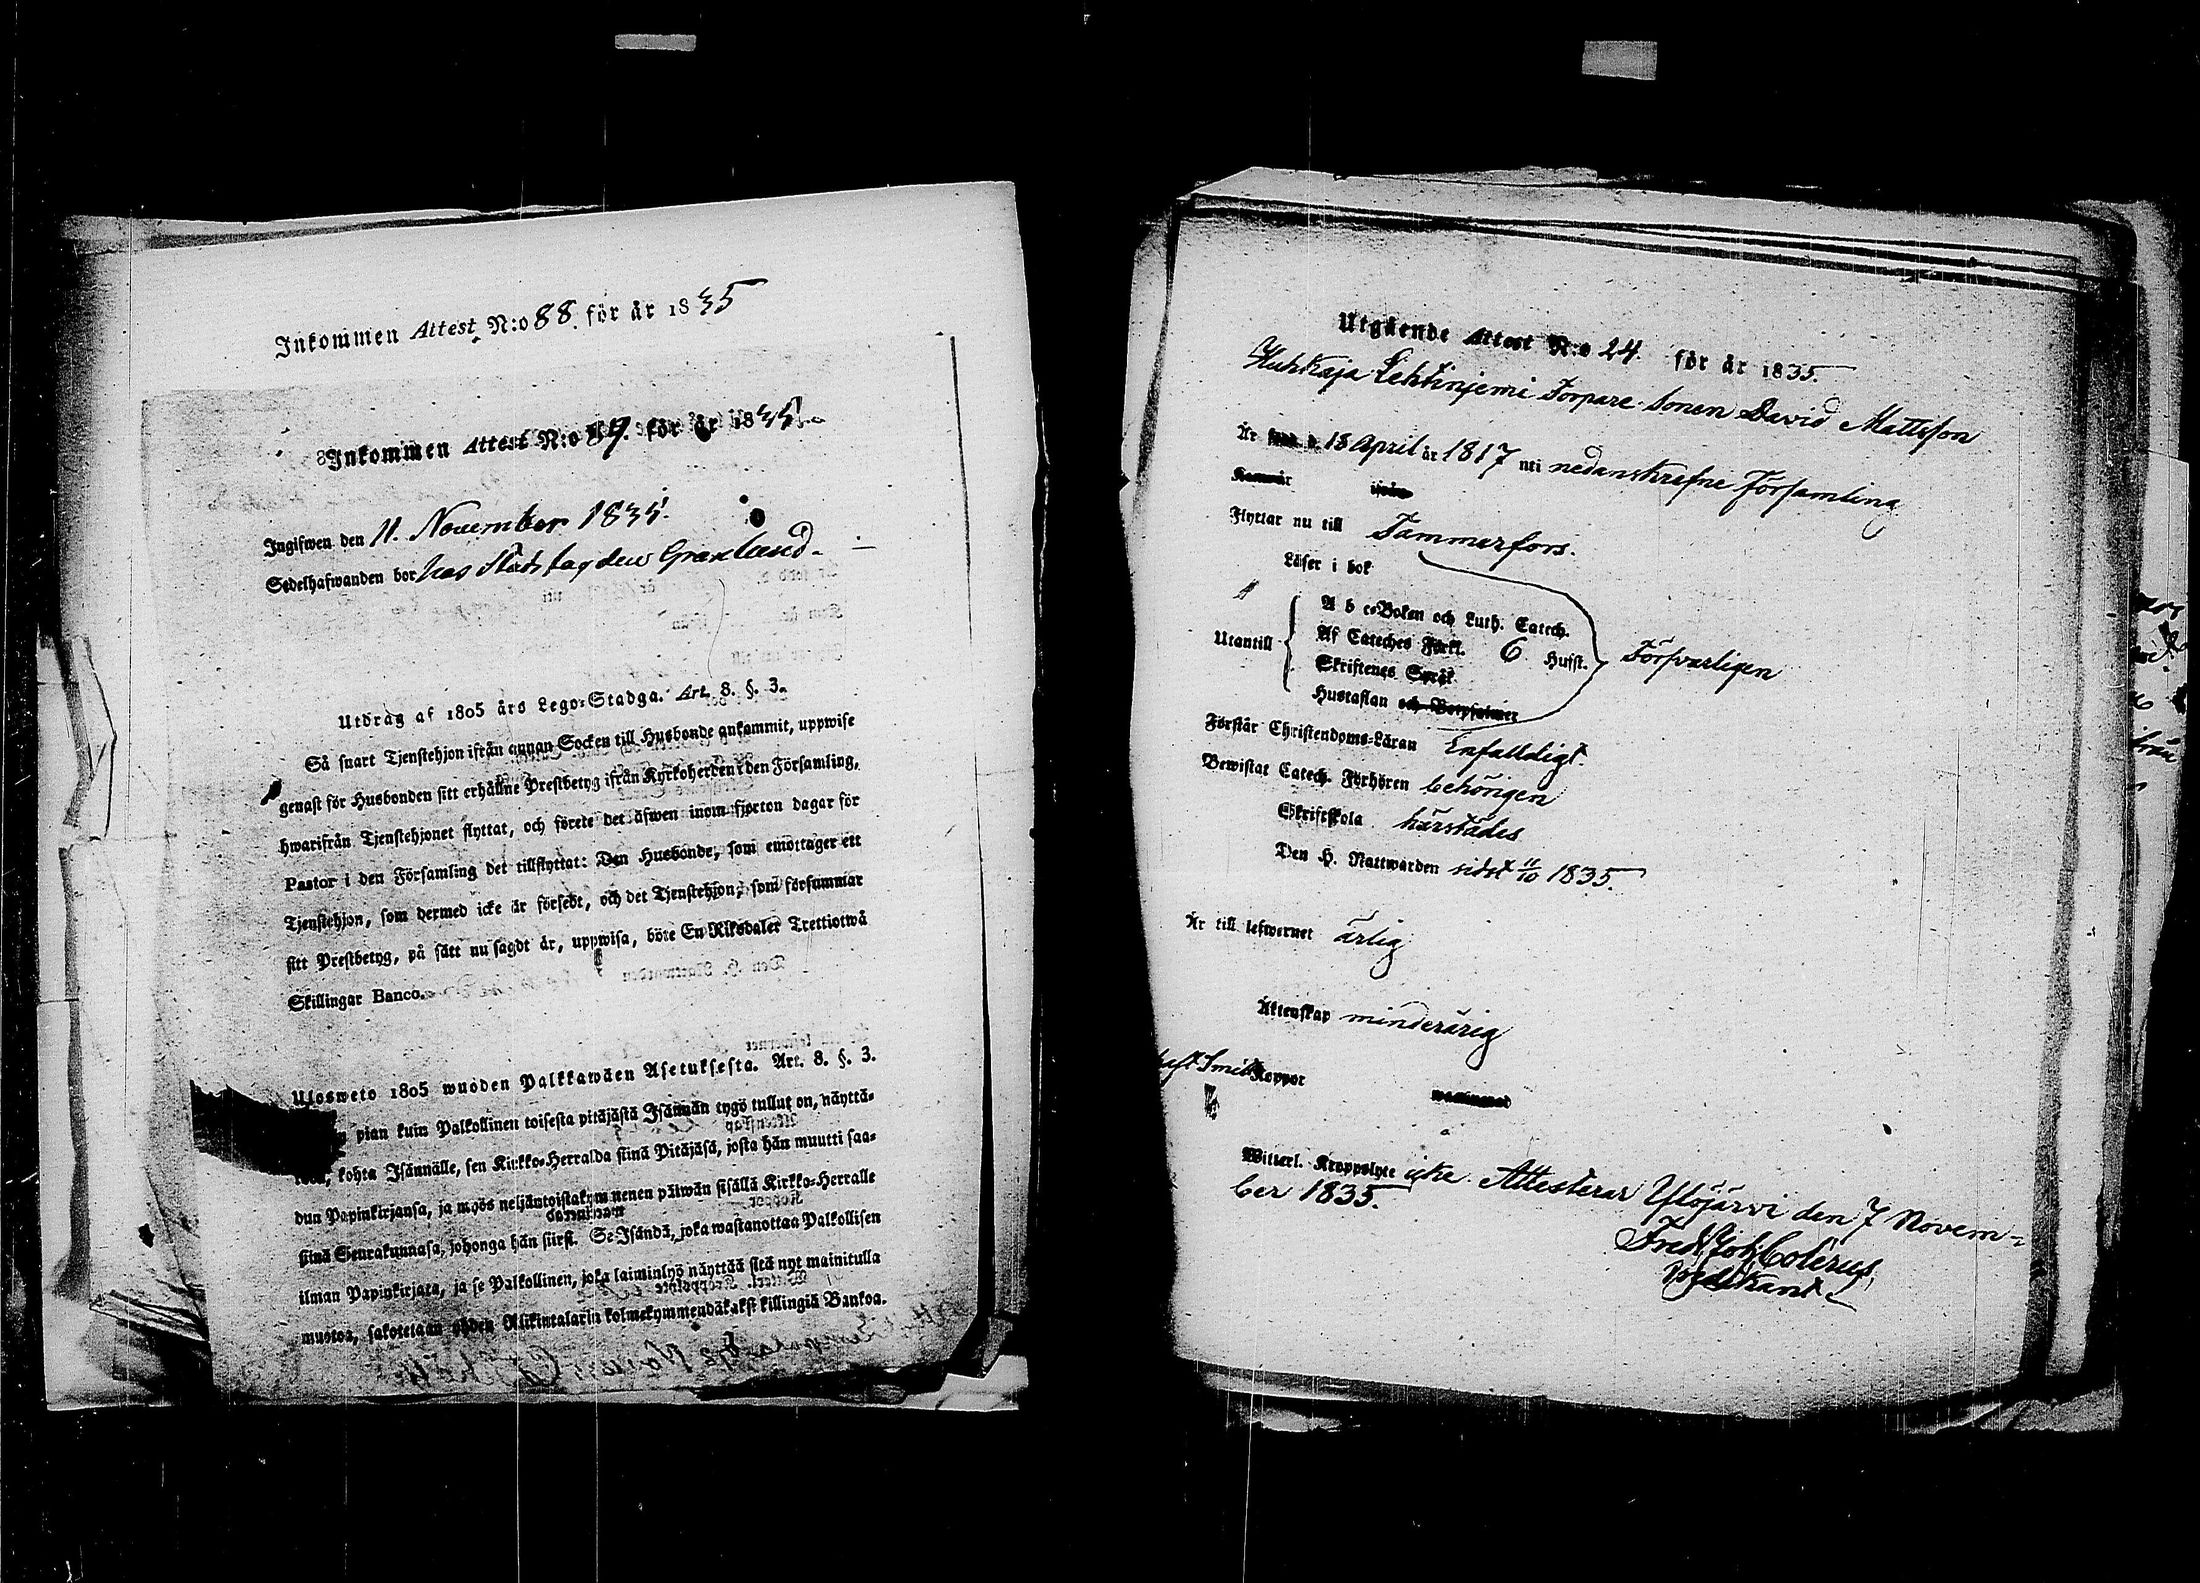 Inkommen Attest N:o 88. för år 1835
Inkommen Attest N:o 89. för år 1835.
Ingifwen den 11. November 1835.
Sedelhafwanden bor hos Stadsfogden Graxlund.
Utdrag af 1805 års Lego-Stadga. Art. 8. §. 3.
Så snart Tjenstehjon ifrån annan Socken till Husbonde ankommit, uppwise
genast för Husbonden sitt erhållne Prestbetyg ifrån Kyrkoherden i den Församling,
hwarifrån Tjenstehjonet flyttat, och förete det äfwen inom fjorton dagar för
Pastor i den Församling det tillflyttat: Den Husbonde, som emottager ett
Tjenstehjon, som dermed icke är försedt, och det Tjenstehjon, som försummar
sitt Prestbetyg, på sätt nu sagdt är, uppwisa, böte En Riksdaler Trettiotwå
Skillingar Banco.
Ulosweto 1805 wuoden Palkkawäen Asetuksesta. Art. 8. §. 3.
pian kuin Palkollinen toisesta pitäjästä Isännän tygö tullut on, näyttä-
kohta Isännälle, sen Kirkko-Herralda siinä Pitäjäsä, josta hän muutti saa-
dun Papinkirjansa, ja myös neljäntoistakymmenen päiwän sisällä Kirkko-Herralle
siinä Seurakunnasa, johonga hän siirsi. Se Isändä, joka wastanottaa Palkollisen
ilman Papinkirjata, ja se Palkollinen, joka laiminlyö näyttää sitä nyt mainitulla
muotoa, sakotetaan yhden Riikintalarin kolmekymmendäkaksi killingiä Bankoa.
Utgående Attest N:o 24. för år 1835.
Huhkaja Lehtinjemi Torpare Sonen David Mattsson
Är född d. 18 April år 1817 uti nedanskrefne Församling
Kom år ifrån
Flyttar nu till Tammerfors.
Läser i bok
A b c-Boken och Luth. Catech.
Utantill Af Cateches Förkl. 6 Hufst. Försvarligen
Skriftenes Språk
Hustaflan och Botpsalmer
Förstår Christendoms-Läran Enfalldigt
Bewistat Catech. Förhören behörigen
Skriftskola härstädes
Den H. Nattwarden sidst 11/10 1835.
Är till lefwernet ärlig
Äktenskap minderårig
haft Smitt Koppor waccinerad
Witterl. Kroppslyte icke. Attesterar Ylöjärvi den 7 Novem-
ber 1835.
Fredr Joh Colerus,
Predikant.